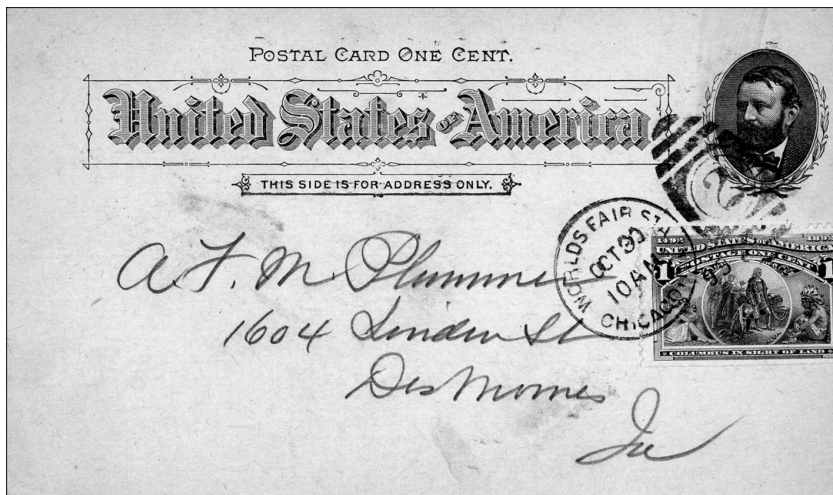 POSTAL CARD ONE CENT.
United States OF America
THIS SIDE IS FOR ADDRESS ONLY.
WORLDS FAIR STA
OCT 30
10 AM
93
CHICAGO
1492 1892
UNITED STATES OF AMERICA
POSTAGE ONE CENT
1 1
COLUMBUS IN SIGHT OF LAND
A. F. M. Plummer
1604 Linden St
Des Moines
Ia